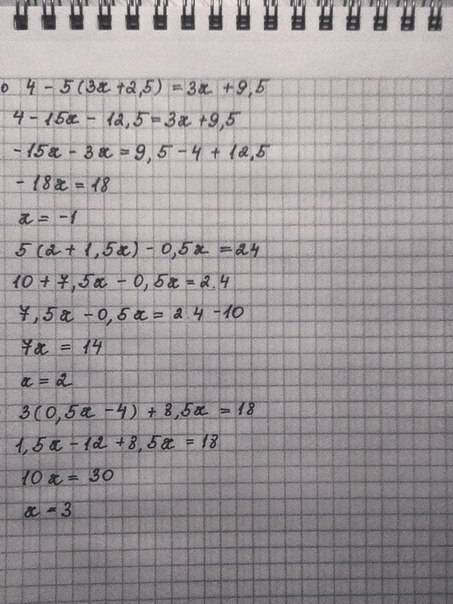 4 - 5(3x+2,5) = 3x + 9,5
4 - 15x - 12,5 = 3x + 9,5
-15x - 3x = 9,5 - 4 + 12,5
- 18x = 18
x = -1
5(2 + 1,5x) - 0,5x = 24
10 + 7,5x - 0,5x = 2.4
7,5x - 0,5x = 2.4 - 10
7x = 14
x = 2
3(0,5x - 4) + 8,5x = 18
1,5x - 12 + 8,5x = 18
10x = 30
x = 3